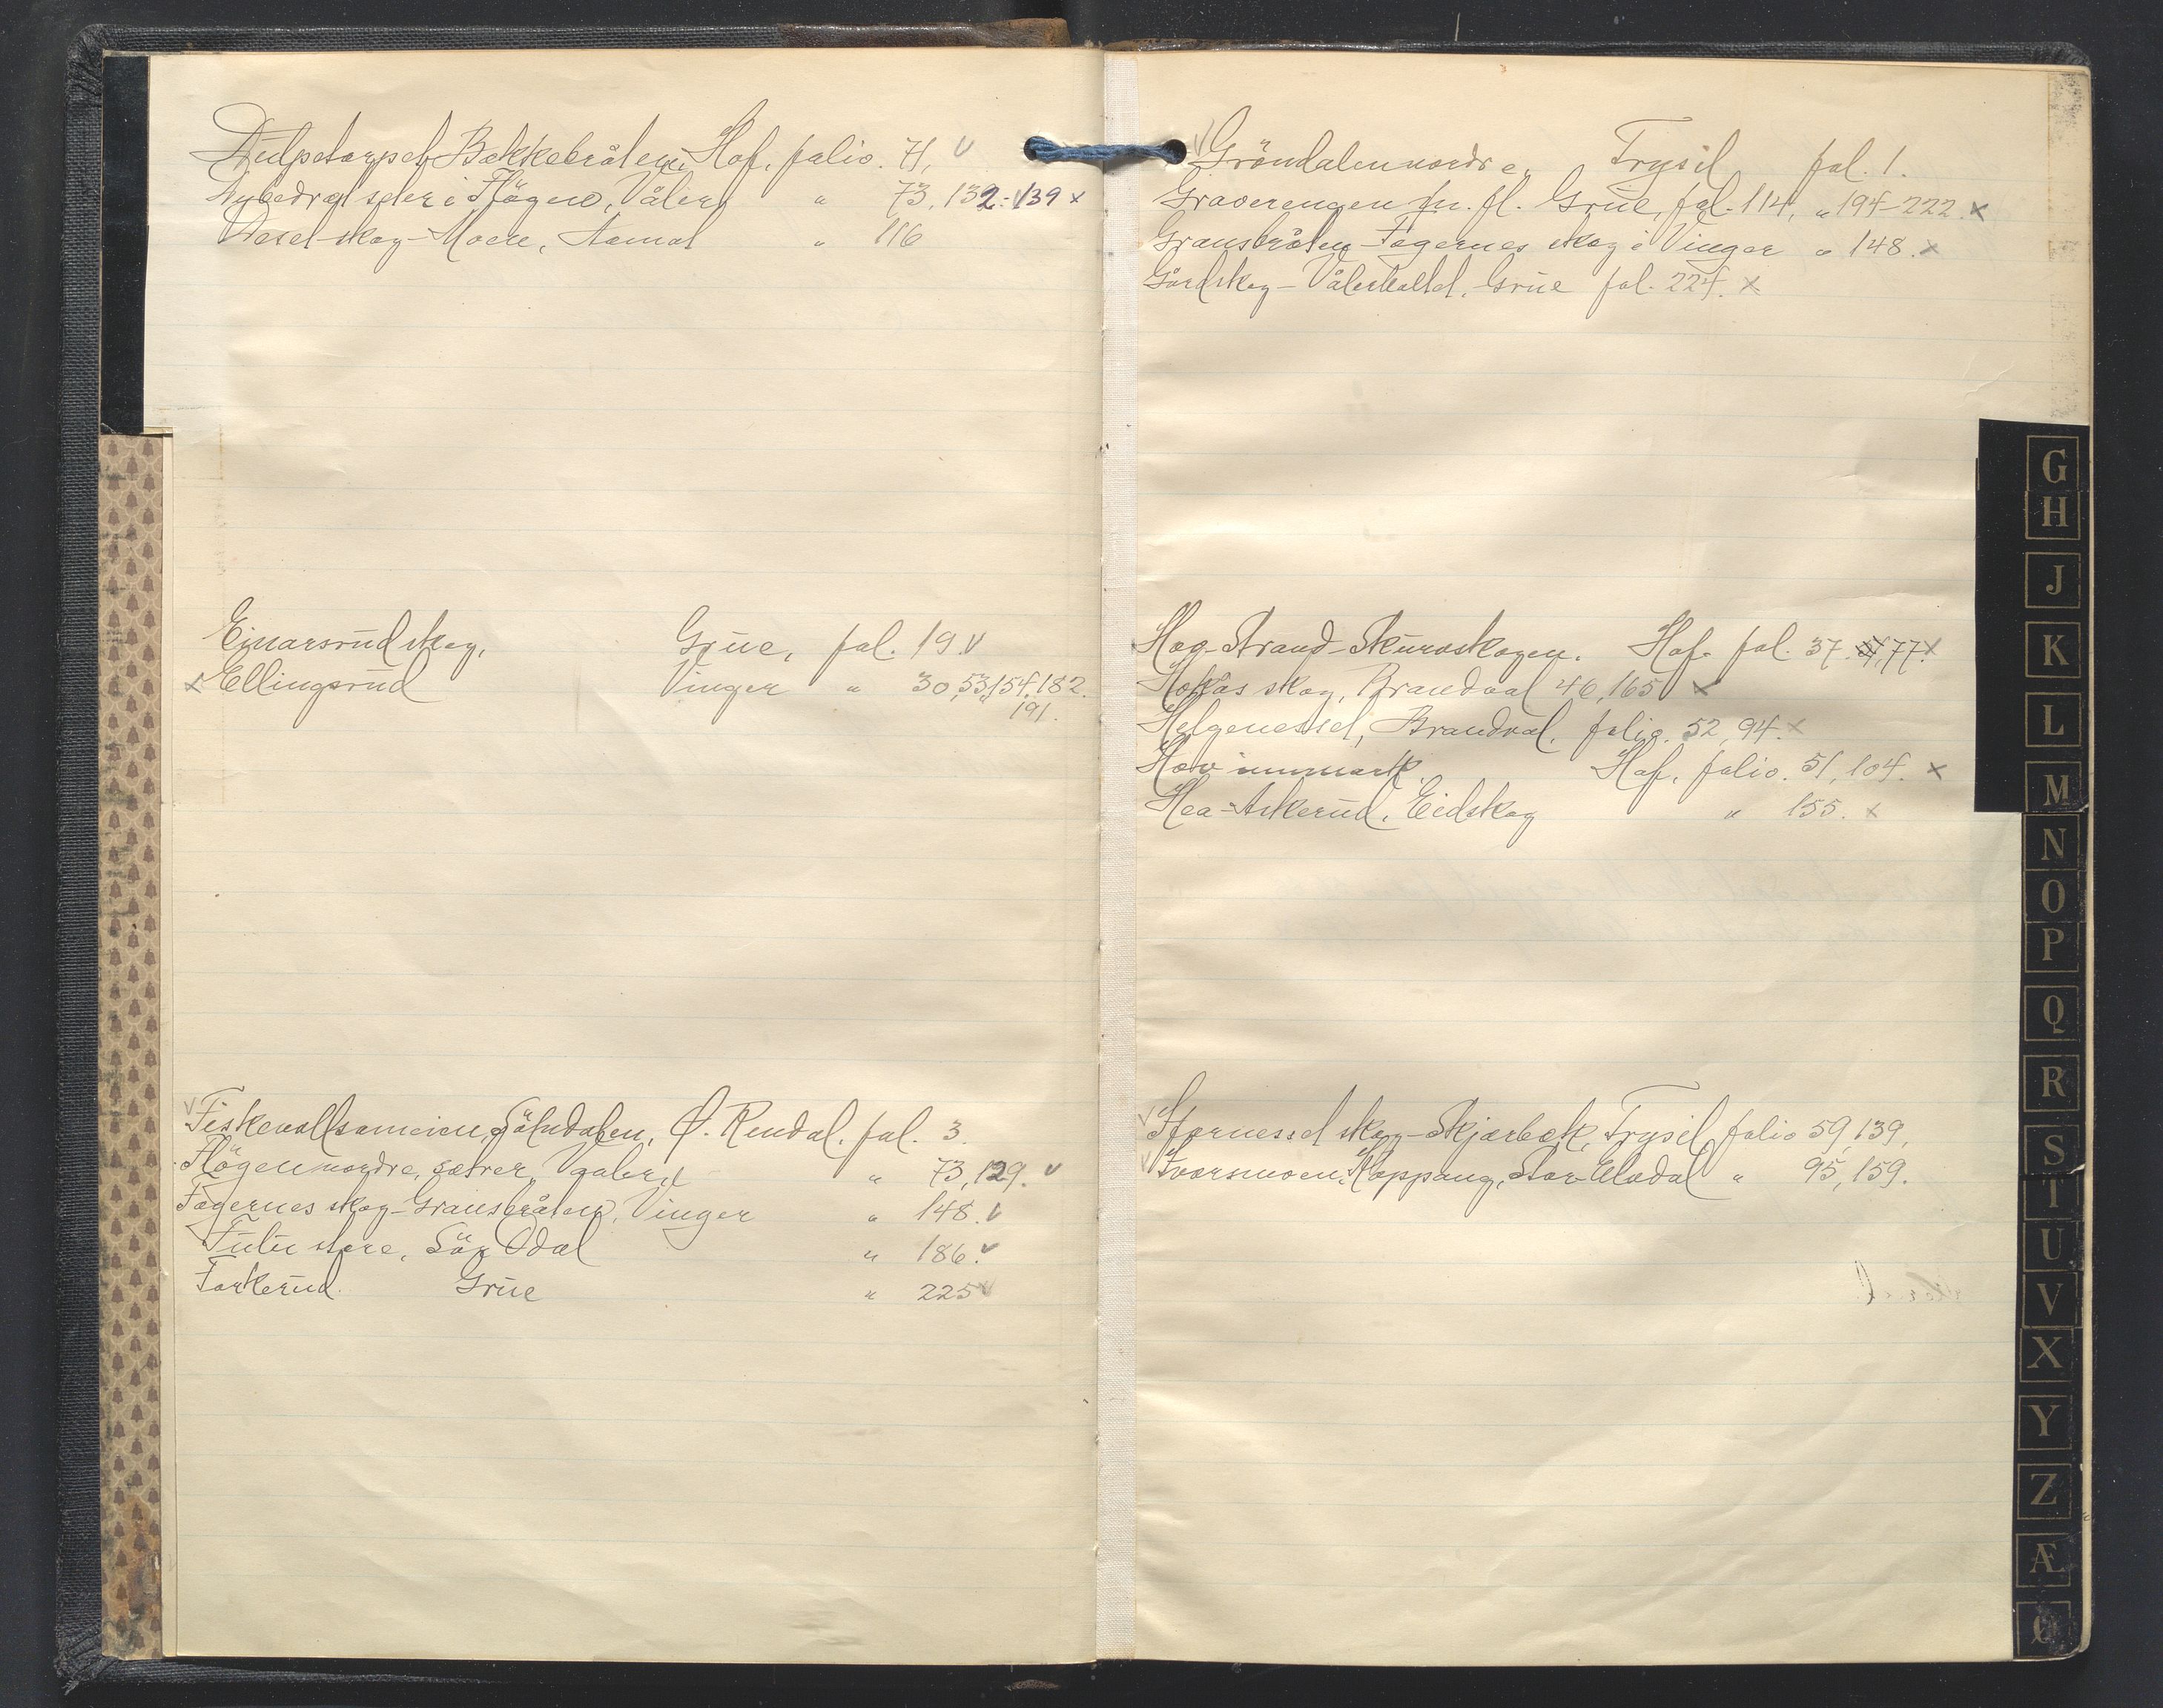 Dulpetorpet, Bækkebråten, Hof, folio. 71, v
seter i Flögen, Våler " 73, 132. v139 x
Desel skog - Moen, Aamot " 116
Einarsrud skog, Grue, fol. 19 v
x Ellingsrud Vinger " 30, 53, 154, 182.
191.
v Fiskevollsameien, Sölndalen, Ø. Rendal. fol. 3.
Flögen nordre, sætrer, Vaaler " 73, 129. v
Fagernes skog - Gransbråten, Vinger " 148. v
Fulu store, Sör Odal " 186. v
Forkerud. Grue " 225 v
v Gröndalen nordre, Trysil fol. 1.
Graverengen m. fl. Grue, fol. 114, " 194-222. x
Gransbråten - Fagernes skog i Vinger " 148. x
Gårdskog - Våler Grue fol. 224. x
Hog - Strand - Skurvskogen. Hof. fol. 37. 77 x
Hokås skog, Brandval 46, 165 x
Helgenesset, Brandval. folio. 52, 94. x
Hov innmark Hof, folio. 51, 104. x
Hea - Askerud, Eidskog " 155. x
v skog - Skjærbæk, Trysil folio 59, 139,
v Ivarsmoen, Koppang, Stor-Elvdal " 95, 159.
G
H
J
K
L
M
N
O
P
Q
R
S
T
U
V
X
Y
Z
Æ
Ø